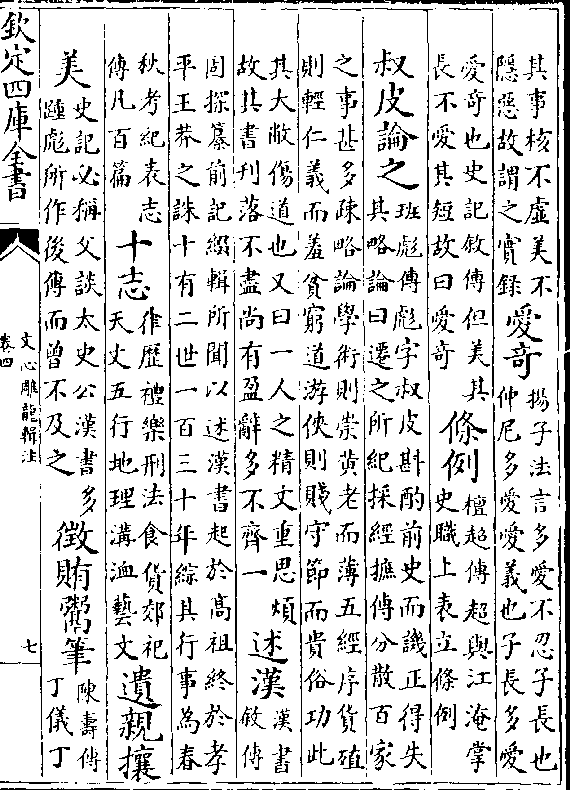 其事核不虛美不
隱惡故謂之實錄
愛竒
揚子法言多愛不忍子長也
仲尼多愛愛義也子長多愛
愛竒也史記敘傳但美其
長不愛其短故曰愛竒
條例
檀超傳超與江淹掌
史職上表立條例
叔皮論之
班彪傳彪字叔皮斟酌前史而譏正得失
其略論曰遷之所紀採經摭傳分散百家
之事甚多疎略論學術則崇黃老而薄五經序貨殖
則輕仁義而羞貧窮道游俠則賤守節而貴俗功此
其大敝傷道也又曰一人之精文重思煩
故其書刋落不盡尚有盈辭多不齊一
述漢
漢書
敘傳
固探纂前記綴輯所聞以述漢書起於高祖終於孝
平王莽之誅十有二世一百三十年綜其行事為春
秋考紀表志
傳凡百篇
十志
律歷禮樂刑法食貨郊祀
天文五行地理溝洫藝文
遺親攘
美
史記必稱父談太史公漢書多
踵彪所作後傳而曾不及之
徵賄鬻筆
陳壽傳
丁儀丁
欽定四庫全書
文心雕龍輯注
卷四
七